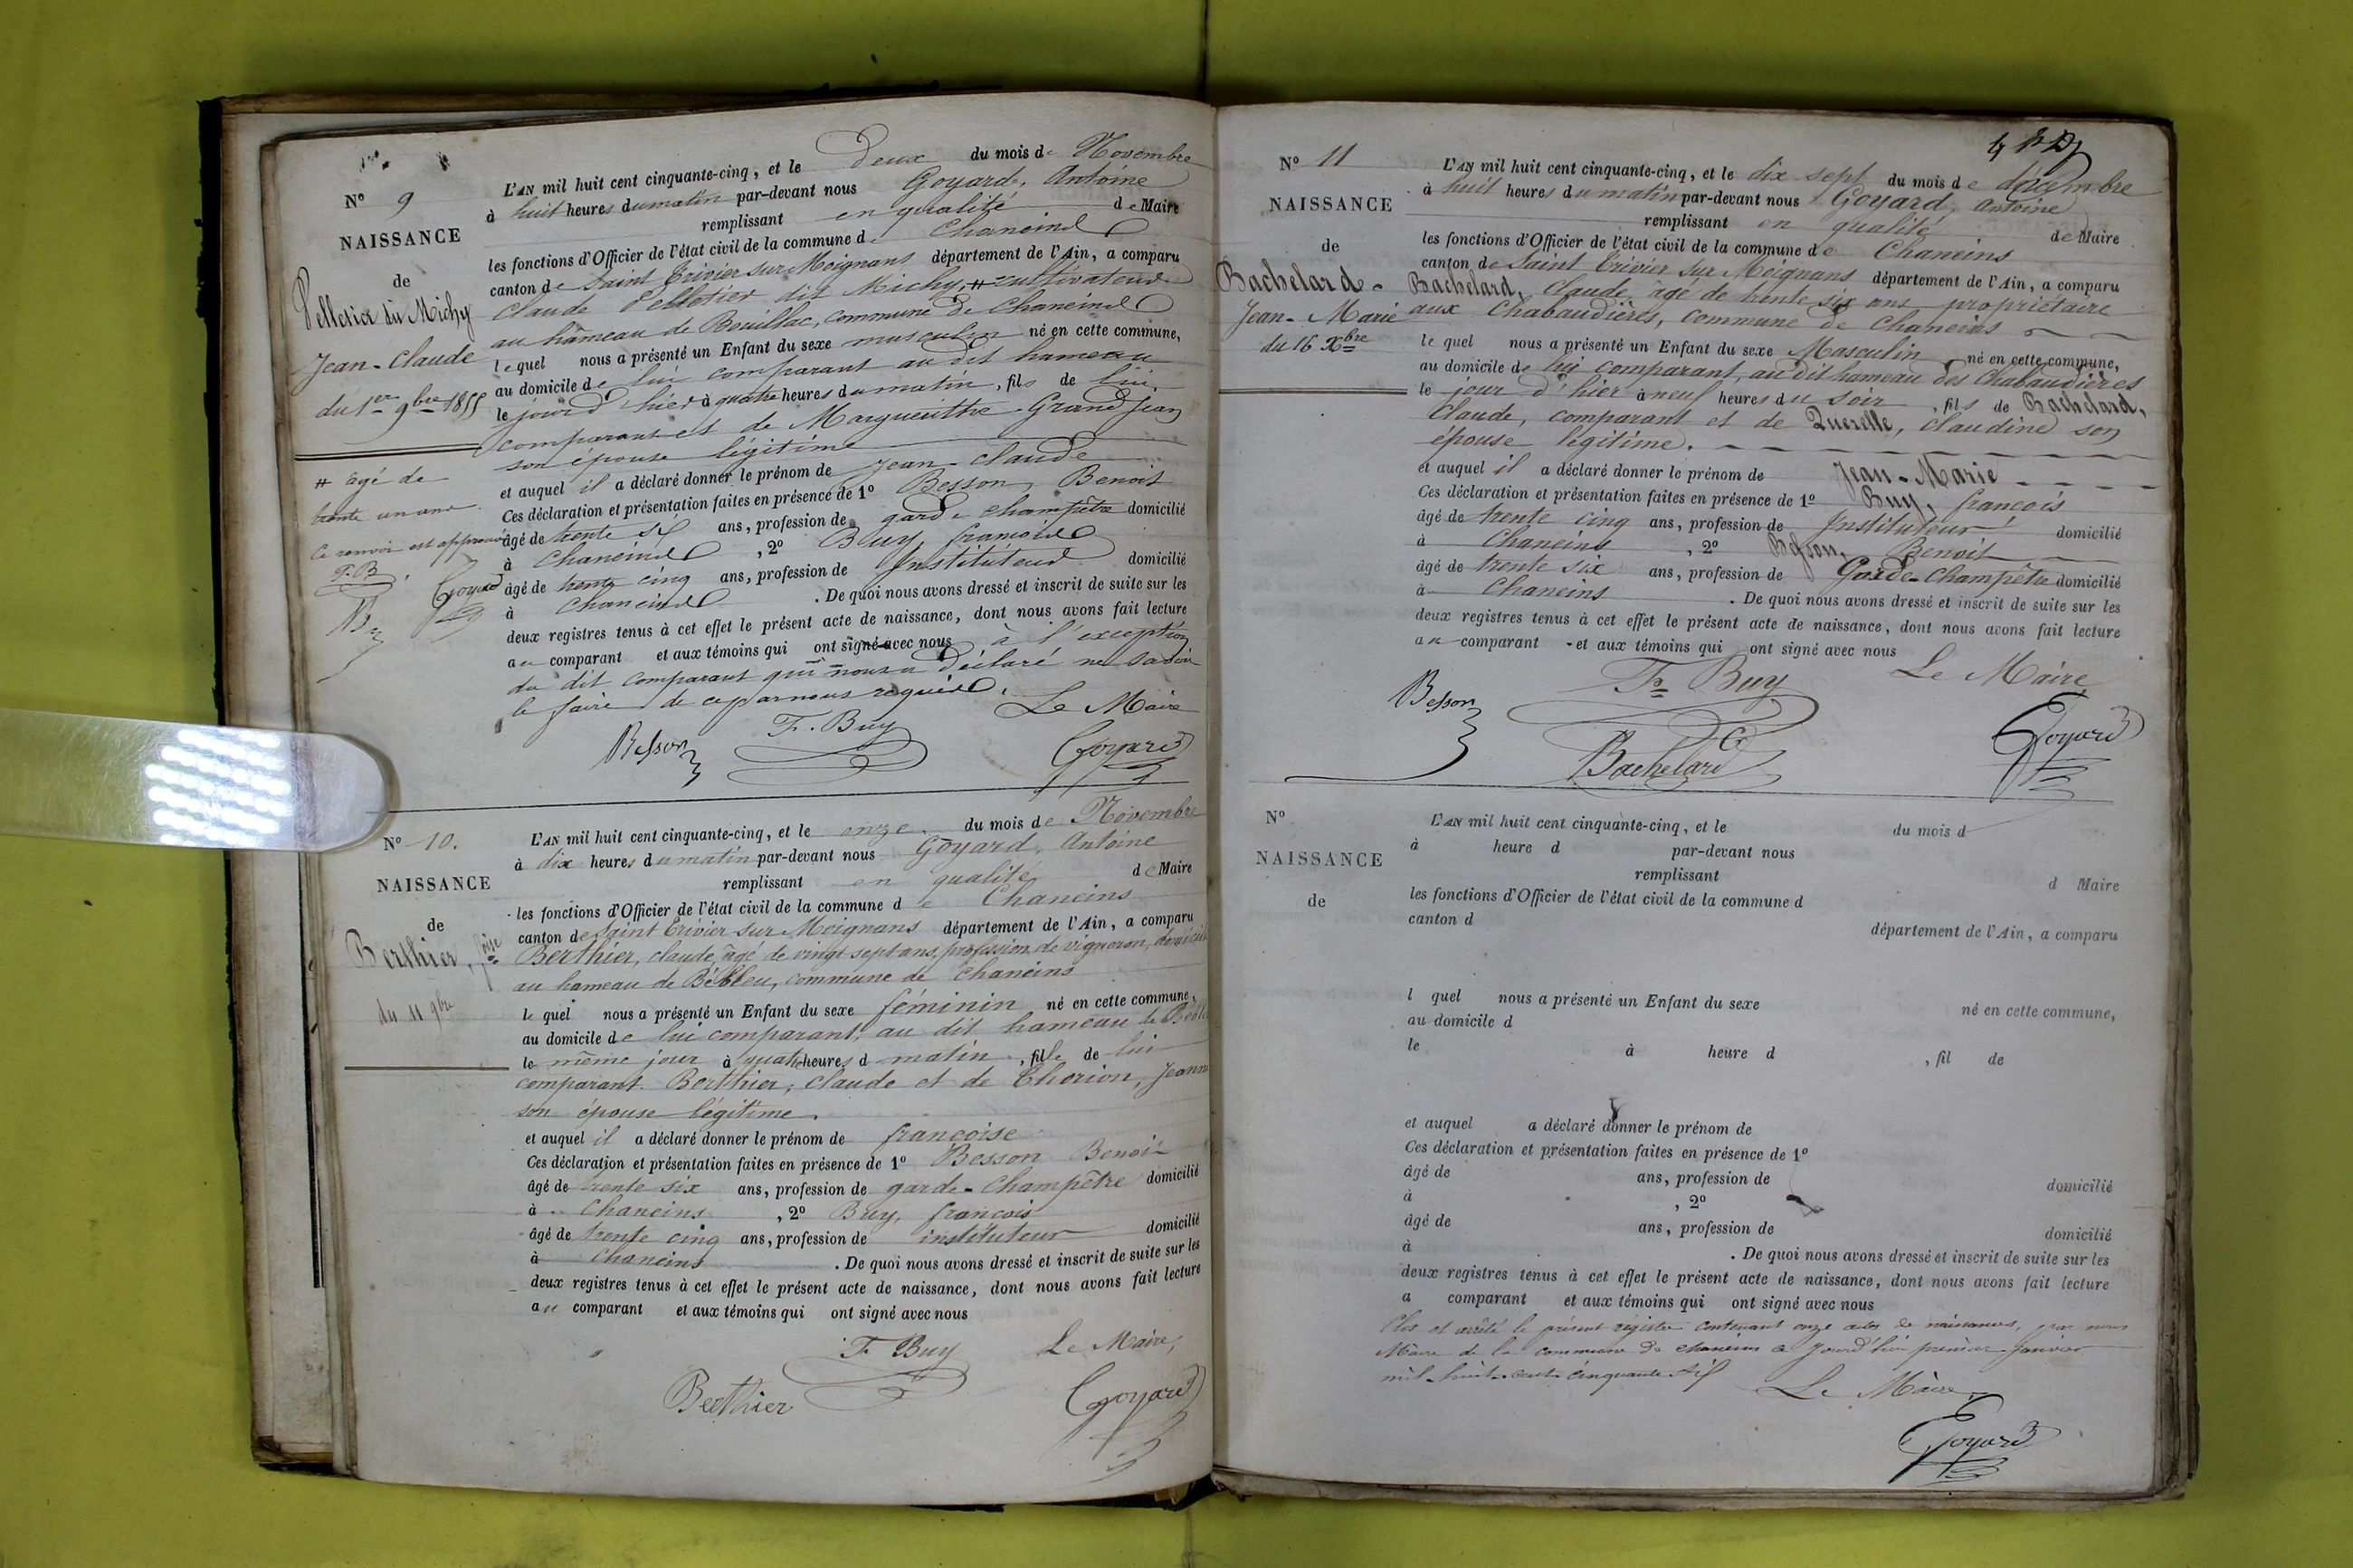 N° 9
NAISSANCE
de
Pelletier dit Michy
Jean-Claude
du 1er 9bre 1855
# agé de
trente un ans
Ce renvoi est approuvé
F. B. Goyard
L'AN mil huit cent cinquante-cinq, et le deux du mois de Novembre
à huit heures du matin par-devant nous Goyard, Antoine
remplissant en qualité de Maire
les fonctions d'Officier de l'état civil de la commune de Chaneins
canton de Saint Trivier sur Moignans département de l'Ain, a comparu
Claude Pelletier dit Michy, # cultivateur
au hameau de Bouillac, commune de Chaneins
lequel nous a présenté un Enfant du sexe masculin né en cette commune,
au domicile de lui comparant au dit hameau
le jour d'hier à quatre heures du matin, fils de lui
comparant et de Margueritte Grand Jean
son épouse légitime
et auquel il a déclaré donner le prénom de Jean-Claude
Ces déclaration et présentation faites en présence de 1° Besson, Benoit
âgé de trente six ans, profession de garde champêtre domicilié
à Chaneins, 2° Buy, françois
âgé de trente cinq ans, profession de Instituteur domicilié
à Chaneins. De quoi nous avons dressé et inscrit de suite sur les
deux registres tenus à cet effet le présent acte de naissance, dont nous avons fait lecture
au comparant et aux témoins qui ont signé avec nous à l'exception
du dit comparant qui nous a déclaré ne savoir
le faire de ce par nous requis.
Le Maire
Besson F. Buy Goyard
N° 10.
NAISSANCE
de
Berthier, foise
du 11 9bre
L'AN mil huit cent cinquante-cinq, et le onze du mois de Novembre
à dix heures du matin par-devant nous Goyard, Antoine
remplissant en qualité de Maire
les fonctions d'Officier de l'état civil de la commune de Chaneins
canton de Saint Trivier sur Moignans département de l'Ain, a comparu
Berthier, claude, âgé de vingt sept ans, profession de vigneron, domicilié
au hameau de Bébleu, commune de Chaneins
lequel nous a présenté un Enfant du sexe féminin né en cette commune,
au domicile de lui comparant, au dit hameau de
le même jour à quatre heures d matin, fille de lui
comparant Berthier, claude et de Thorion, Jeanne
son épouse légitime.
et auquel il a déclaré donner le prénom de françoise
Ces déclaration et présentation faites en présence de 1° Besson Benoit
âgé de trente six ans, profession de garde-Champêtre domicilié
à Chaneins, 2° Buy, françois
âgé de trente cinq ans, profession de instituteur domicilié
à chaneins. De quoi nous avons dressé et inscrit de suite sur les
deux registres tenus à cet effet le présent acte de naissance, dont nous avons fait lecture
au comparant et aux témoins qui ont signé avec nous
F. Buy Le Maire,
Berthier Goyard
N° 11
NAISSANCE
de
Bachelard
Jean-Marie
du 16 Xbre
L'AN mil huit cent cinquante-cinq, et le dix sept du mois de décembre
à huit heures du matin par-devant nous Goyard, Antoine
remplissant en qualité de Maire
les fonctions d'Officier de l'état civil de la commune de Chaneins
canton de Saint Trivier sur Moignans département de l'Ain, a comparu
Bachelard, Claude, âgé de trente six ans propriétaire
aux Chabaudières, commune de Chaneins
lequel nous a présenté un Enfant du sexe Masculin, né en cette commune,
au domicile de lui comparant, au dit hameau des Chabaudières
le jour d'hier à neuf heures du soir, fils de Bachelard,
Claude, comparant et de Querelle, Claudine son
épouse légitime.
et auquel il a déclaré donner le prénom de Jean-Marie
Ces déclaration et présentation faites en présence de 1° Buy, françois
âgé de trente cinq ans, profession de Instituteur domicilié
à Chaneins, 2° Besson, Benoit
âgé de trente six ans, profession de Garde-Champêtre domicilié
à Chaneins. De quoi nous avons dressé et inscrit de suite sur les
deux registres tenus à cet effet le présent acte de naissance, dont nous avons fait lecture
au comparant et aux témoins qui ont signé avec nous
Besson Fs Buy Le Maire
Bachelard Goyard
N°
NAISSANCE
de
L'AN mil huit cent cinquante-cinq, et le du mois d
à heure d par-devant nous
remplissant d Maire
les fonctions d'Officier de l'état civil de la commune d
canton d département de l'Ain, a comparu
l quel nous a présenté un Enfant du sexe né en cette commune,
au domicile d
le à heure d , fil de
et auquel a déclaré donner le prénom de
Ces déclaration et présentation faites en présence de 1°
âgé de ans, profession de domicilié
à , 2°
âgé de ans, profession de domicilié
à . De quoi nous avons dressé et inscrit de suite sur les
deux registres tenus à cet effet le présent acte de naissance, dont nous avons fait lecture
a comparant et aux témoins qui ont signé avec nous
Clos et arrêté le présent registre contenant onze actes de naissances, par nous
Maire de la commune de chaneins ce jourd'hui premier Janvier
mil huit cent cinquante six
Le Maire
Goyard